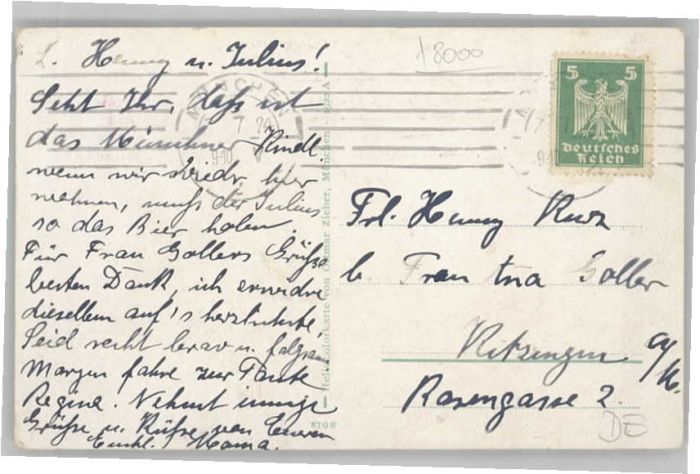 L. Henny u. Julius!
Seht Ihr, dass ist
das Münchner Kindl,
wenn wir wieder hier
wohnen, muss der Julius
so das Bier holen.
Für Frau Gollers Grüsse
besten Dank, ich erwidre
dieselben auf's herzlichste,
Seid recht brav u. folgsam
Morgen fahre zur Tante
Regine. Nehmt innige
Grüsse u. Küsse von Eurer
Mama.
MÜNCHEN
Heliocolorkarte von Ottmar Zieher, München
+8000
5 5
Deutsches
Reich
Frl. Henny Kurz
b. Frau Goller
Kitzingen a/M.
Rosengasse 2.
DE